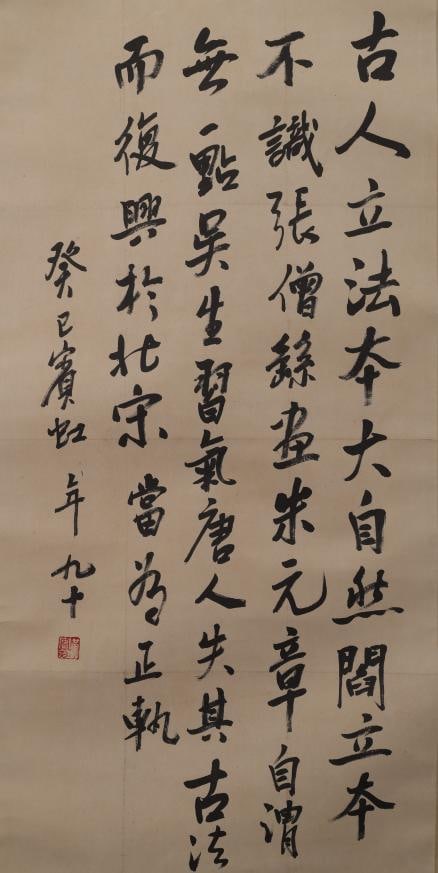 古人立法本大自然閻立本
不識張僧繇畫米元章自謂
無一點吳生習氣唐人失其古法
而復興於北宋當為正軌
癸巳賓虹年九十